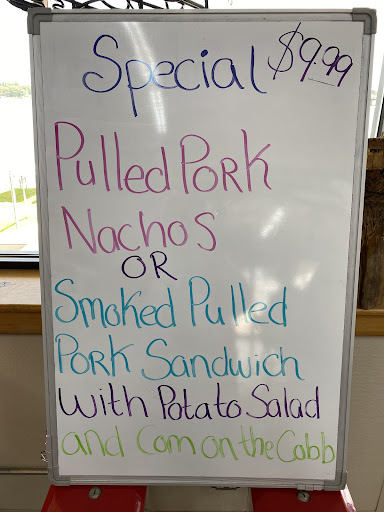 Special $9.99
Pulled Pork
Nachos
OR
Smoked Pulled
Pork Sandwich
with Potato Salad
and Corn on the Cobb